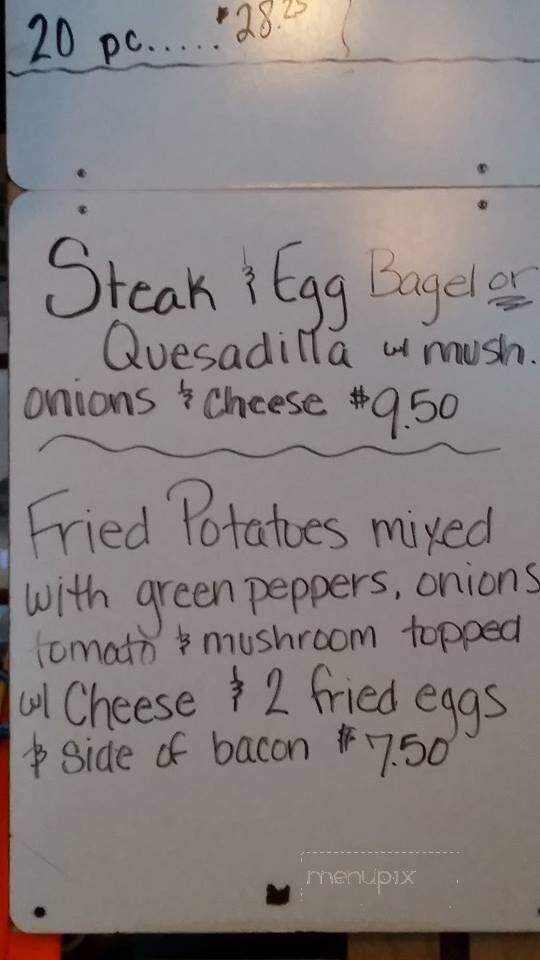 20 pc..... $28.25
Steak & Egg Bagel or
Quesadilla w/ mush.
onions & Cheese $9.50
Fried Potatoes mixed
with green peppers, onions
tomato & mushroom topped
w/ Cheese & 2 fried eggs
& side of bacon $7.50
menupix